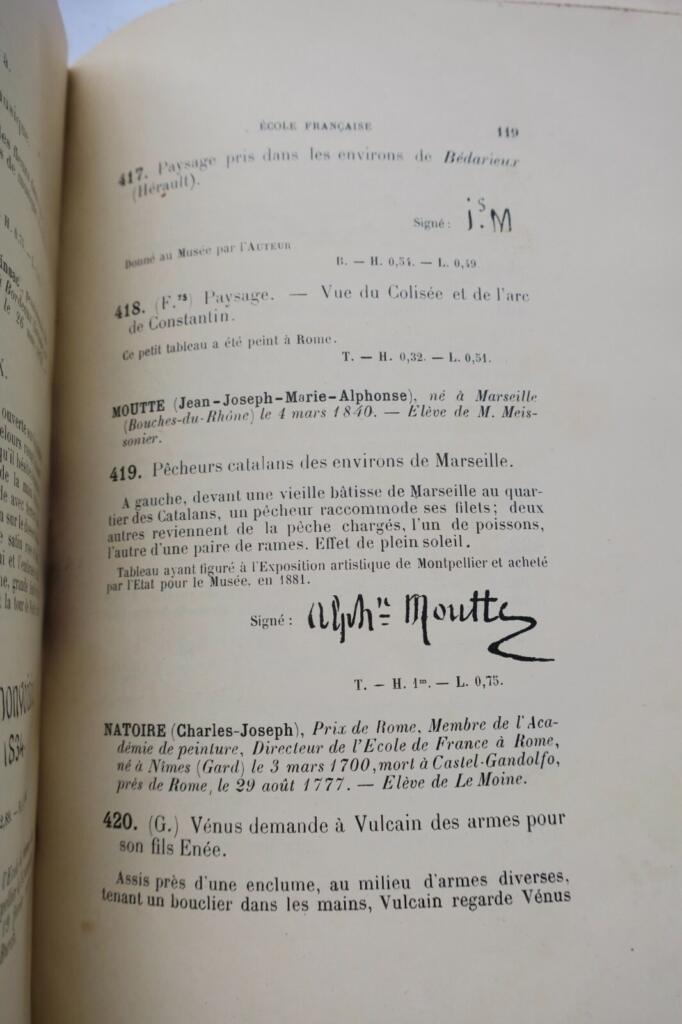 ÉCOLE FRANÇAISE 119
417. Paysage pris dans les environs de Bédarieux
(Hérault).
Signé : j.s M
Donné au Musée par l'AUTEUR
B. — H. 0,54. — L. 0,49
418. (F.75) Paysage. — Vue du Colisée et de l'arc
de Constantin.
Ce petit tableau a été peint à Rome.
T. — H. 0,32. — L. 0,51.
MOUTTE (Jean-Joseph-Marie-Alphonse), né à Marseille
(Bouches-du-Rhône) le 4 mars 1840. — Elève de M. Meis-
sonier.
419. Pêcheurs catalans des environs de Marseille.
A gauche, devant une vieille bâtisse de Marseille au quar-
tier des Catalans, un pêcheur raccommode ses filets ; deux
autres reviennent de la pêche chargés, l'un de poissons,
l'autre d'une paire de rames. Effet de plein soleil.
Tableau ayant figuré à l'Exposition artistique de Montpellier et acheté
par l'Etat pour le Musée, en 1881.
Signé : Alphse Moutte
T. — H. 1m. — L. 0,75.
NATOIRE (Charles-Joseph), Prix de Rome, Membre de l'Aca-
démie de peinture, Directeur de l'Ecole de France à Rome,
né à Nîmes (Gard) le 3 mars 1700, mort à Castel-Gandolfo,
près de Rome, le 29 août 1777. — Elève de Le Moine.
420. (G.) Vénus demande à Vulcain des armes pour
son fils Enée.
Assis près d'une enclume, au milieu d'armes diverses,
tenant un bouclier dans les mains, Vulcain regarde Vénus